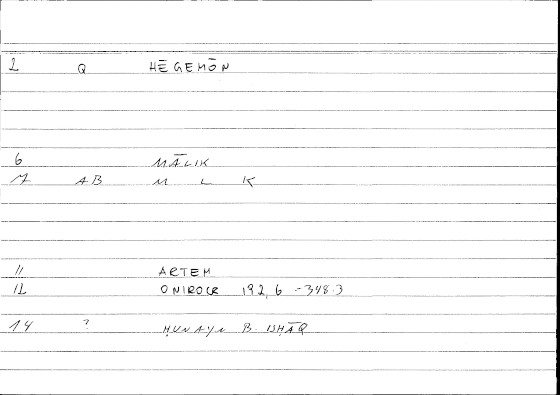 2 Q HĒGEMŌN
6 MĀLIK
7 AB M L K
11 ARTEM
12 ONIROCR 192,6 = 348.3
14 ? ḤUNAYN B. ISḤĀQ